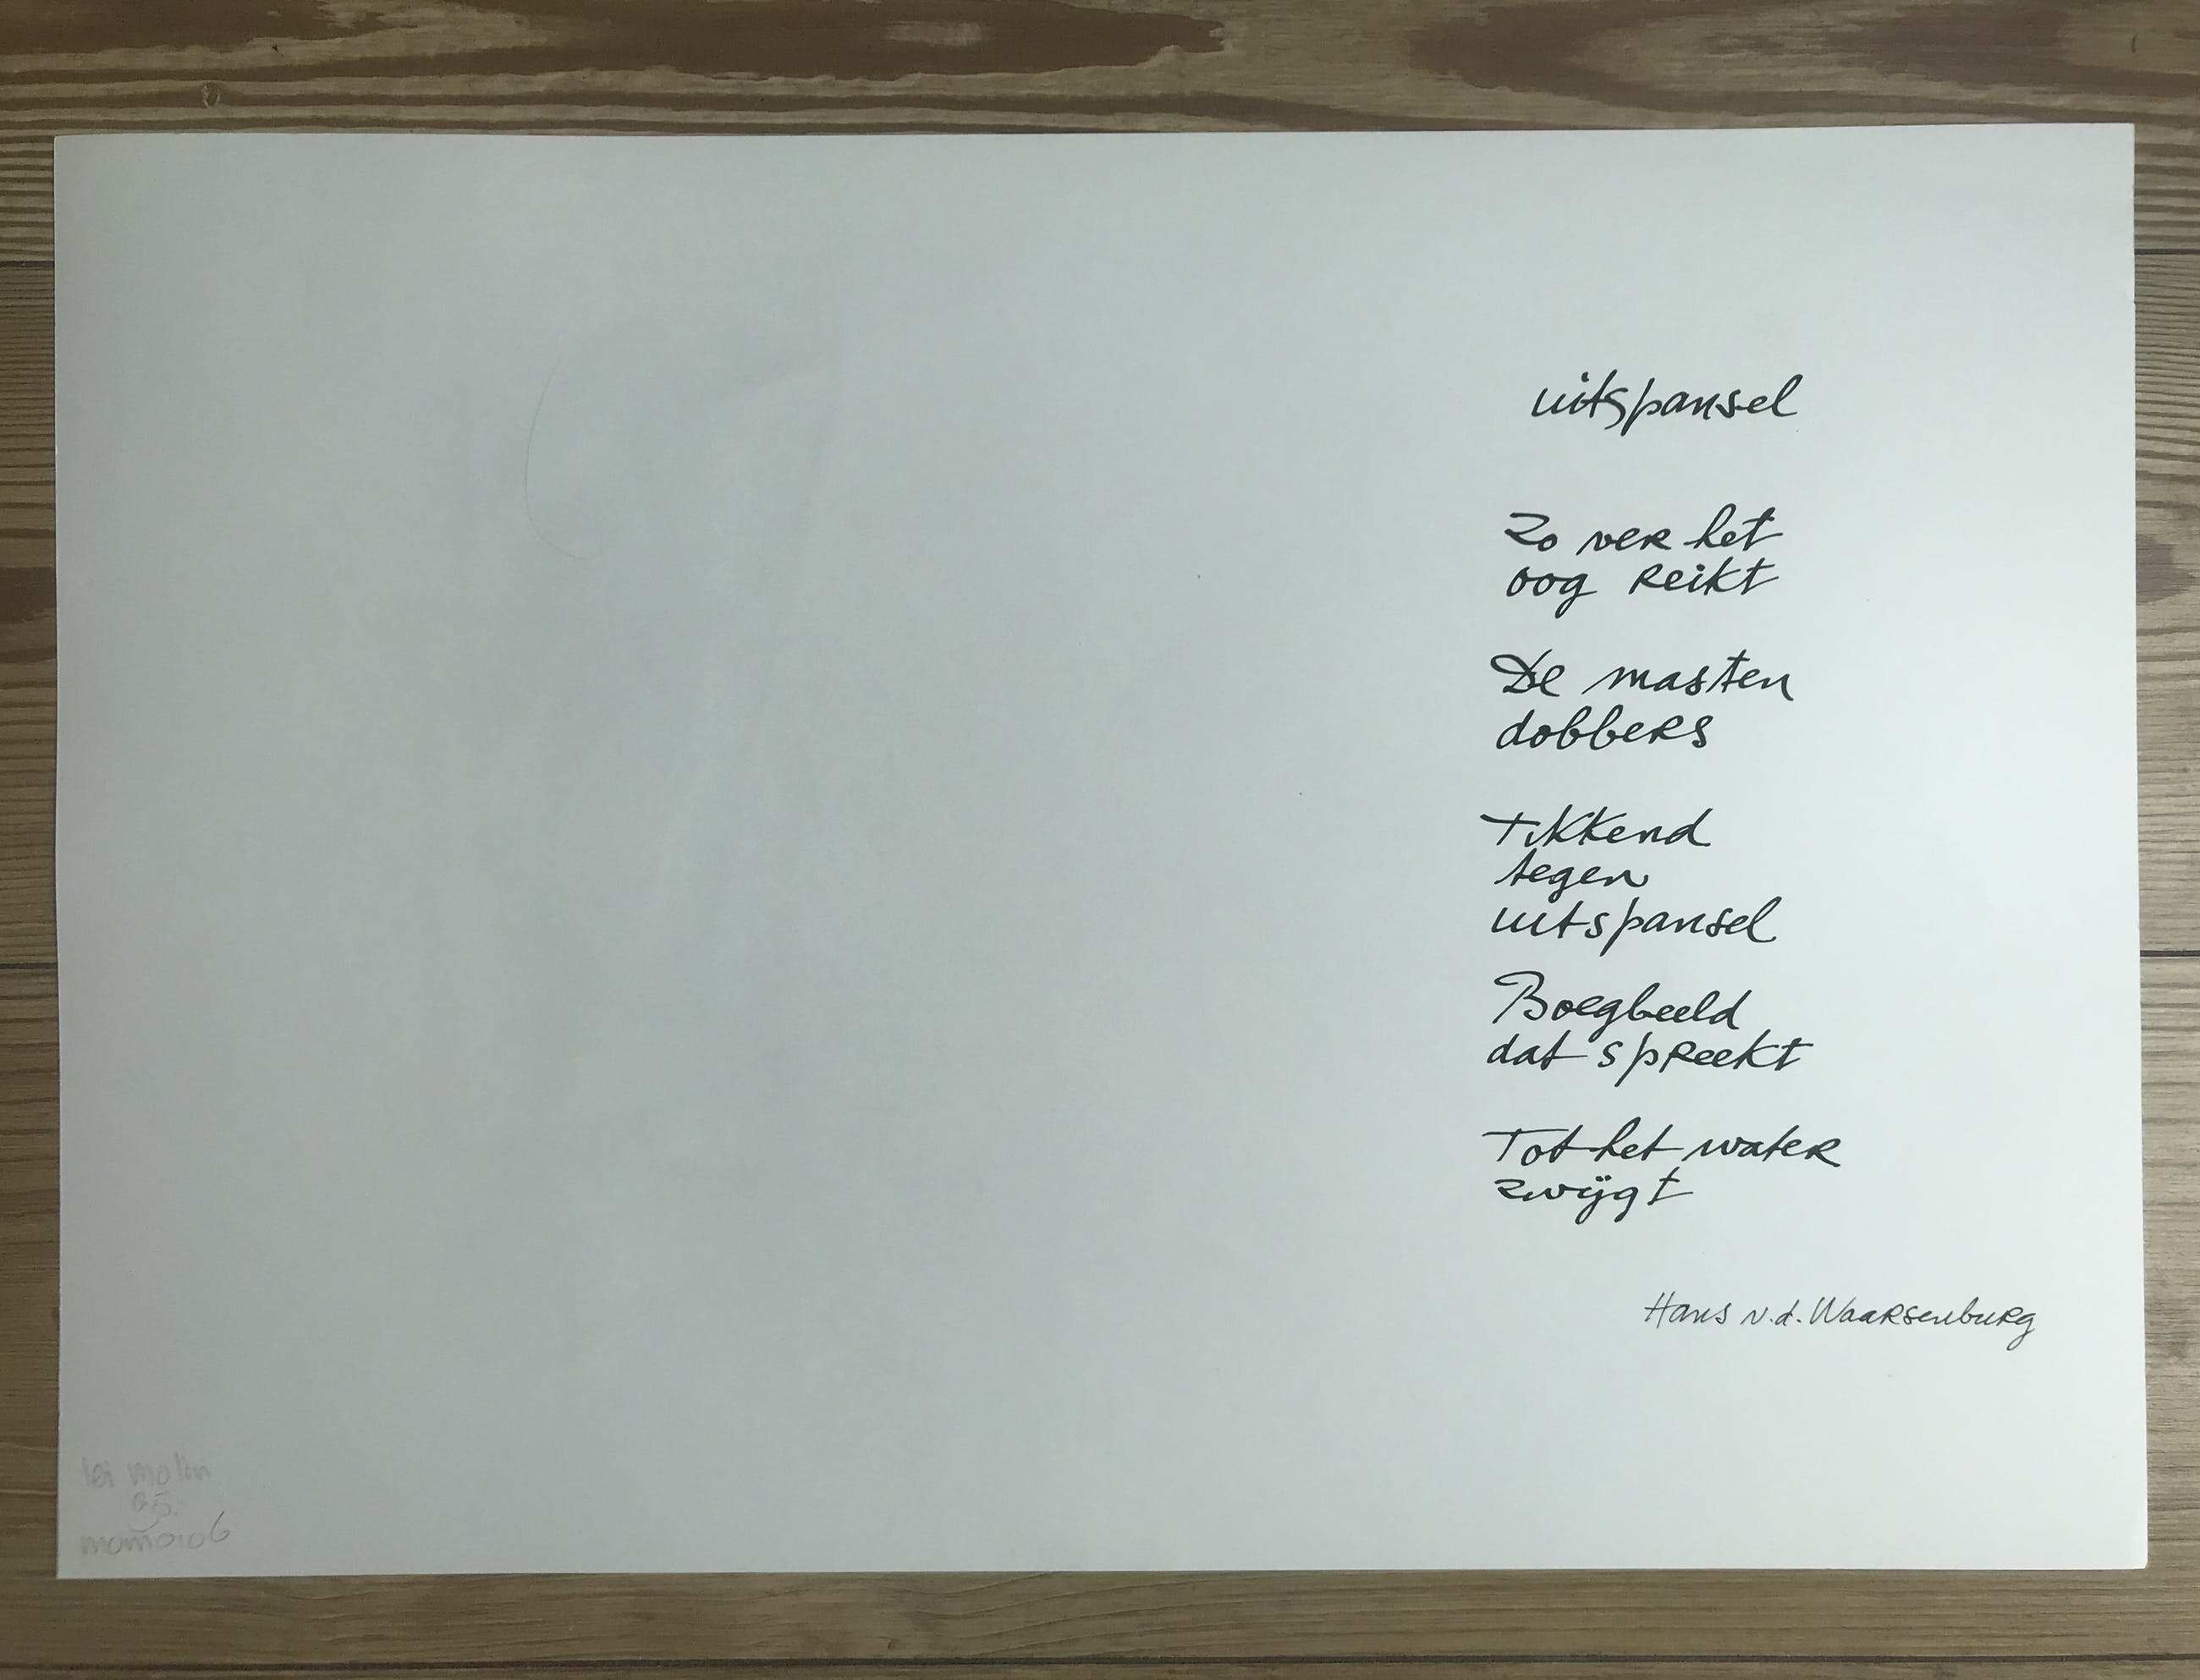 uitspansel
Zo ver het
oog reikt
De masten
dobbers
Tikkend
tegen
uitspansel
Boegbeeld
dat spreekt
Tot het water
zwijgt
Hans v.d. Waarsenburg
lei molin
95.